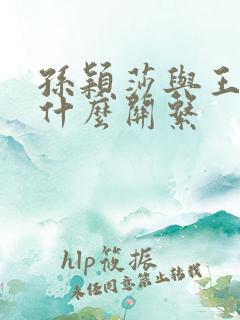 孫穎莎與王
什麼關系
hlp筱振
未任同意禁止转载